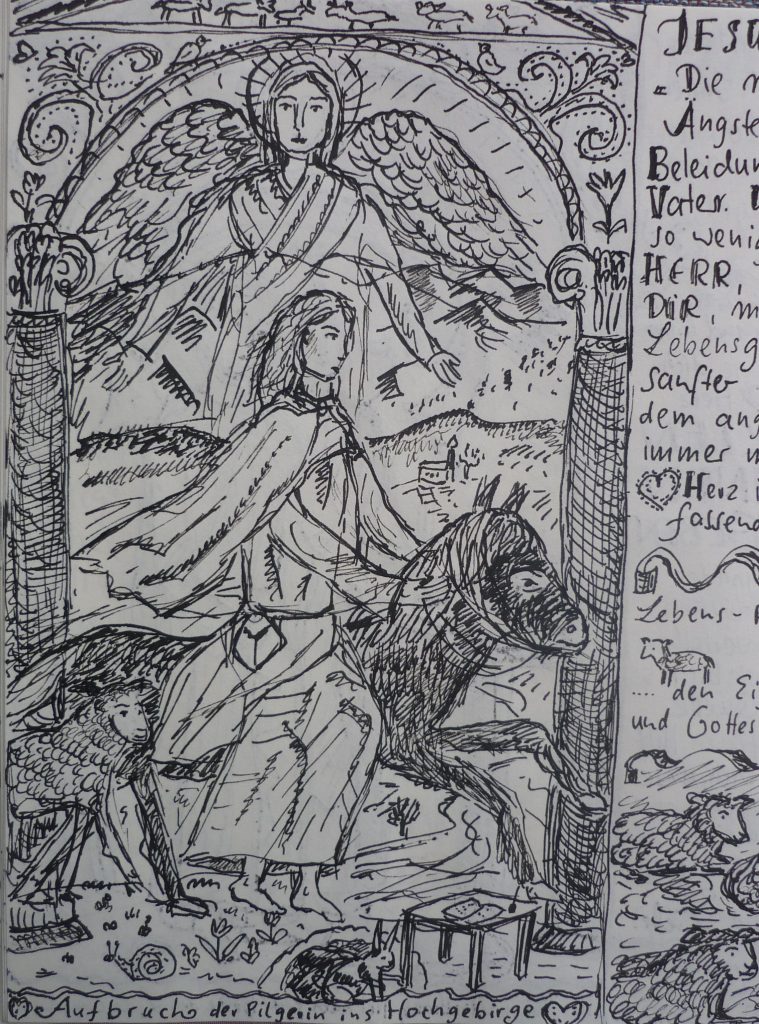 JESU
„Die n
Ängste
Beleidun
Vater. D
so wenig
HERR,
DIR, m
Lebensg
sanfter
dem ang
immer m
Herz i
fassend
Lebens-
.... den Ei
und Gottes
Aufbruch der Pilgerin ins Hochgebirge